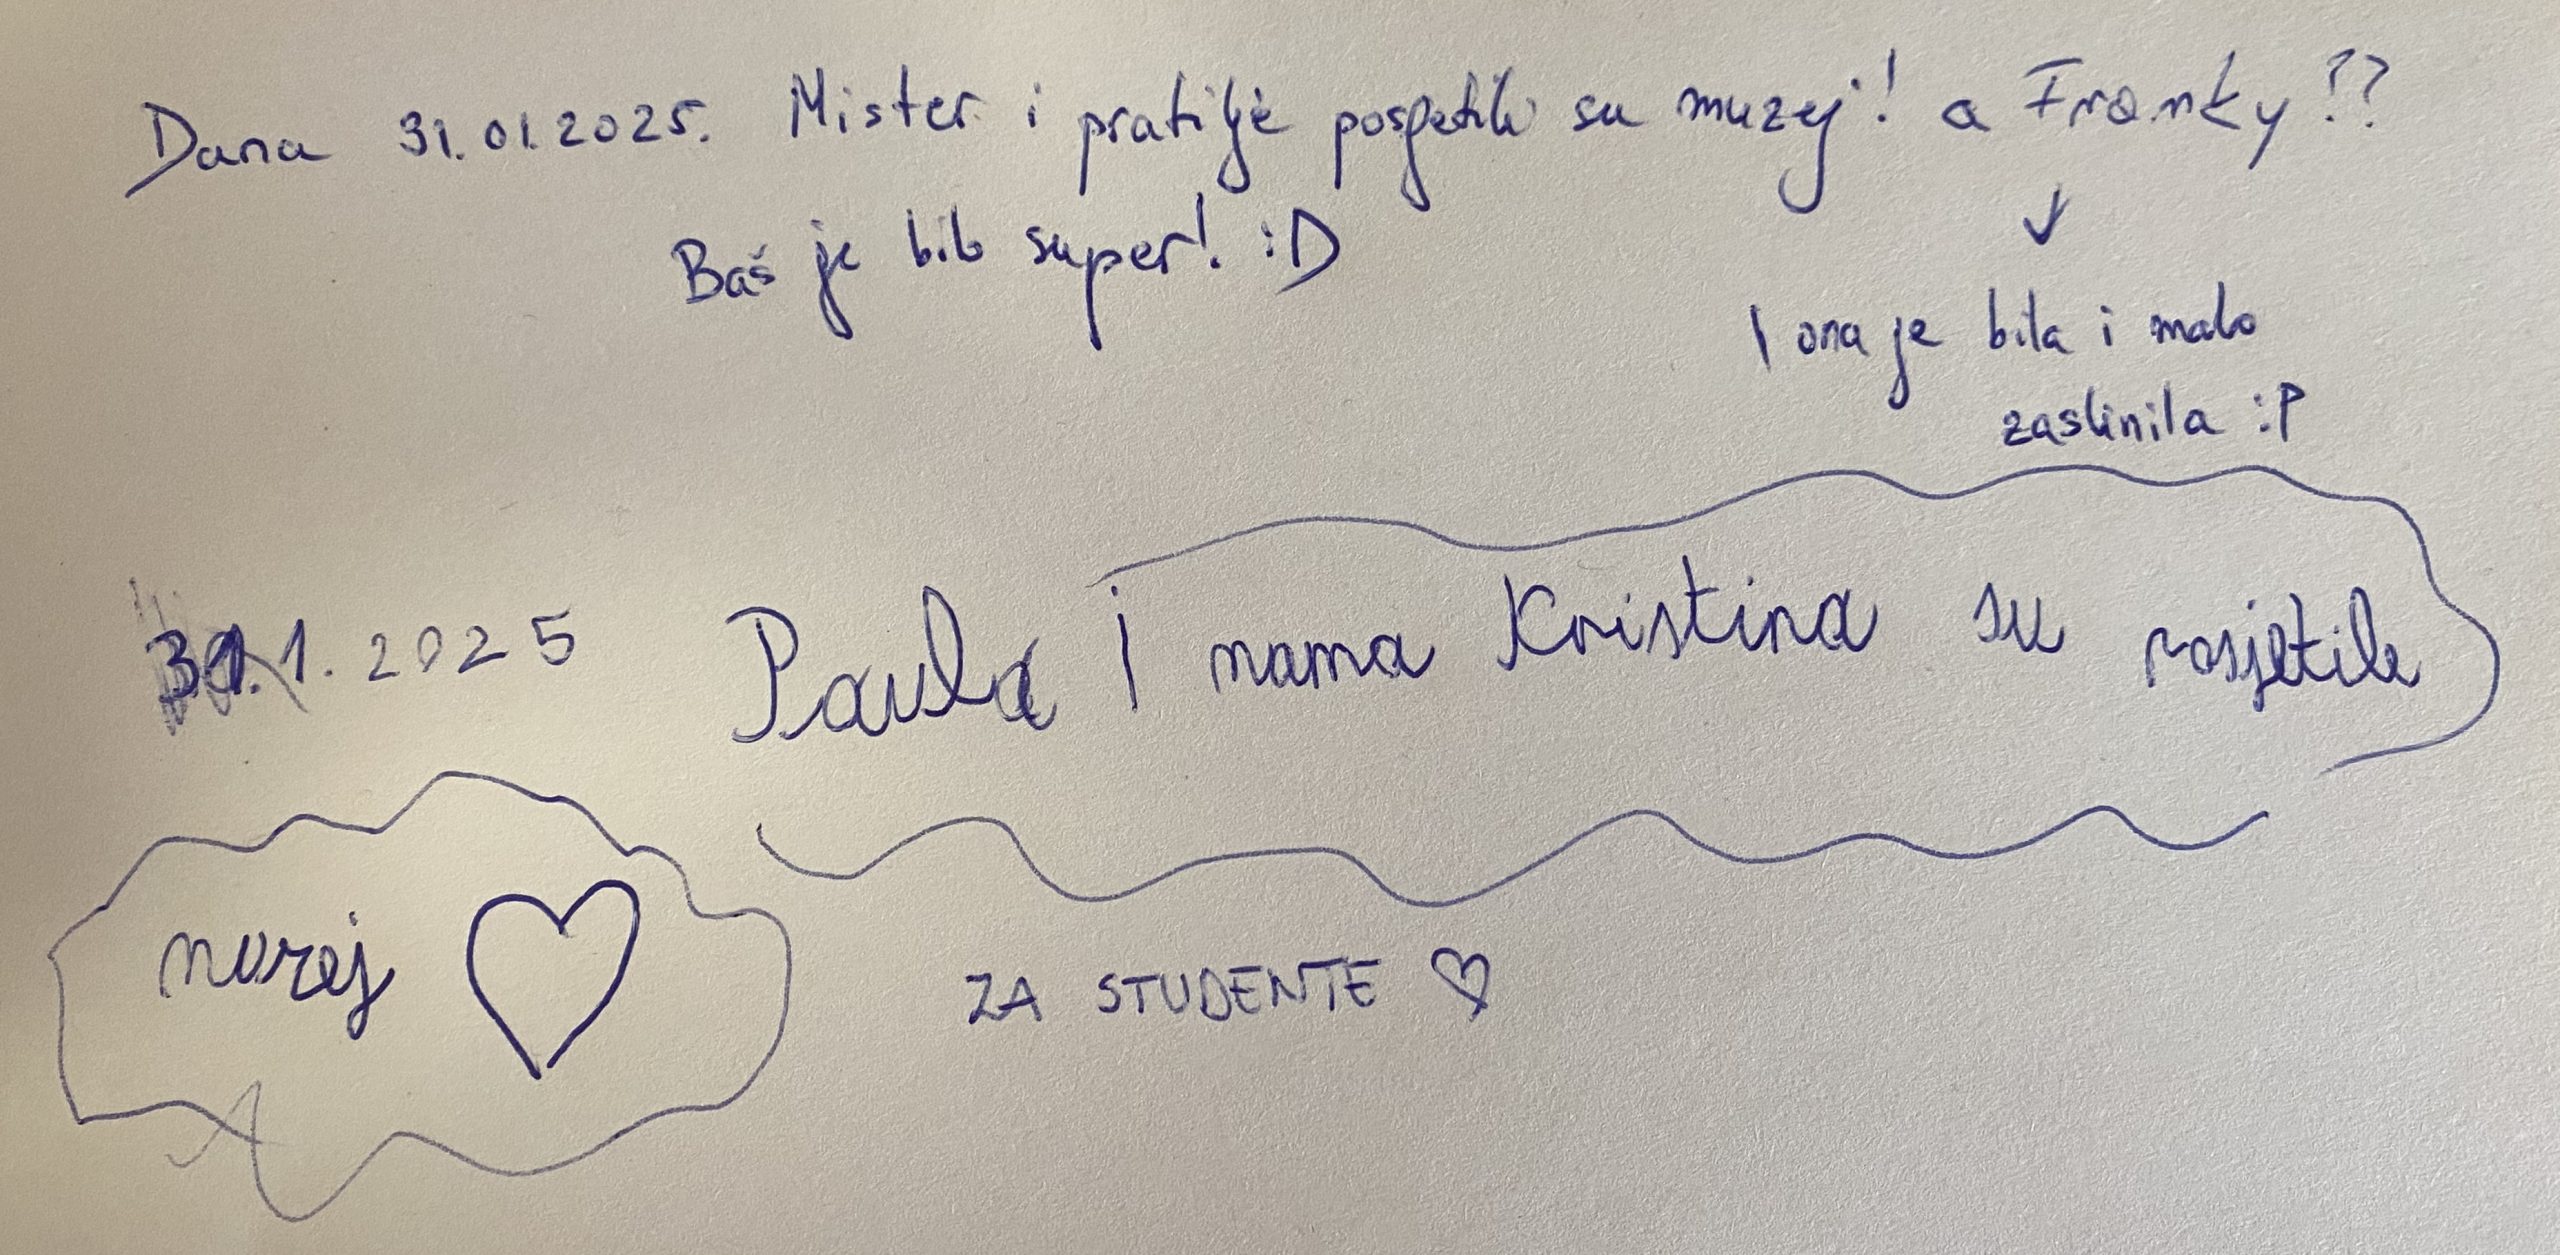 Dana 31.01.2025. Mister i pratilje posjetili su muzej! a Franky??
Baš je bilo super! :D
I ona je bila i malo
zaslinila :P
31.1.2025 Paula i mama Kristina su posjetile
muzej ♡
ZA STUDENTE ♡